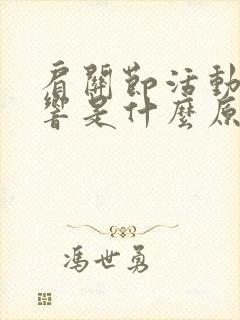 肩關節活動
響是什麼原
馮世勇